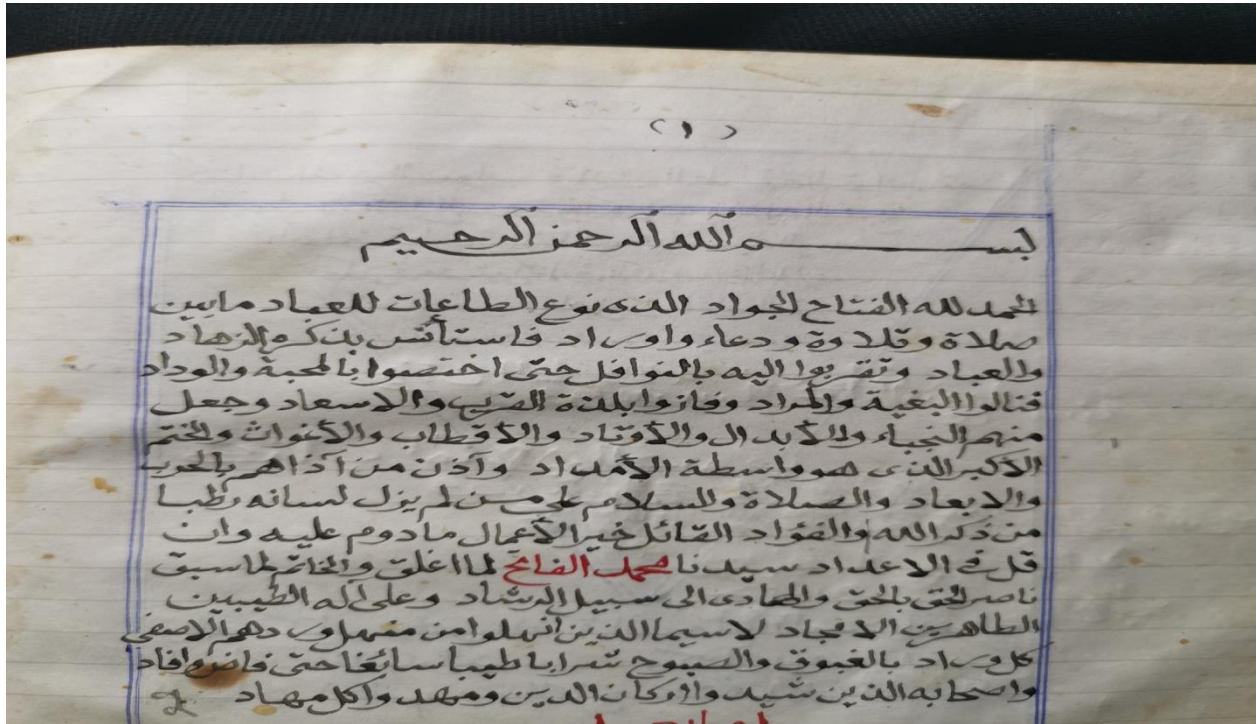 (١)
بسم الله الرحمن الرحيم
الحمد لله الفتاح الجواد الذى نوع الطاعات للعباد مابين
صلاة وتلاوة ودعاء واوراد فاستأنس بذكره الزهاد
والعباد وتقربوا اليه بالنوافل حتى اختصوا بالمحبة والوداد
فنالوا البغية والمراد وفازوا بلذة القرب والاسعاد وجعل
منهم النجباء والأبدال والأوتاد والأقطاب والأغواث والختم
الأكبر الذى هو واسطة الأمداد وآذن من آذاهم بالحرب
والابعاد والصلاة والسلام على من لم يزل لسانه رطبا
من ذكر الله والفؤاد القائل خير الأعمال مادوم عليه وان
قل فى الاعداد سيدنا محمد الفاتح لما اغلق والخاتم لما سبق
ناصر الحق بالحق والهادى الى سبيل الرشاد وعلى آله الطيبين
الطاهرين الامجاد لاسيما الذين انهلوا من منهل وردهم الاصفى
كل وراد بالغبوق والصبوح شرابا طيبا سائغا حتى فاض وافاد
واصحابه الذين شيدوا اركان الدين ومهدوا كل مهاد